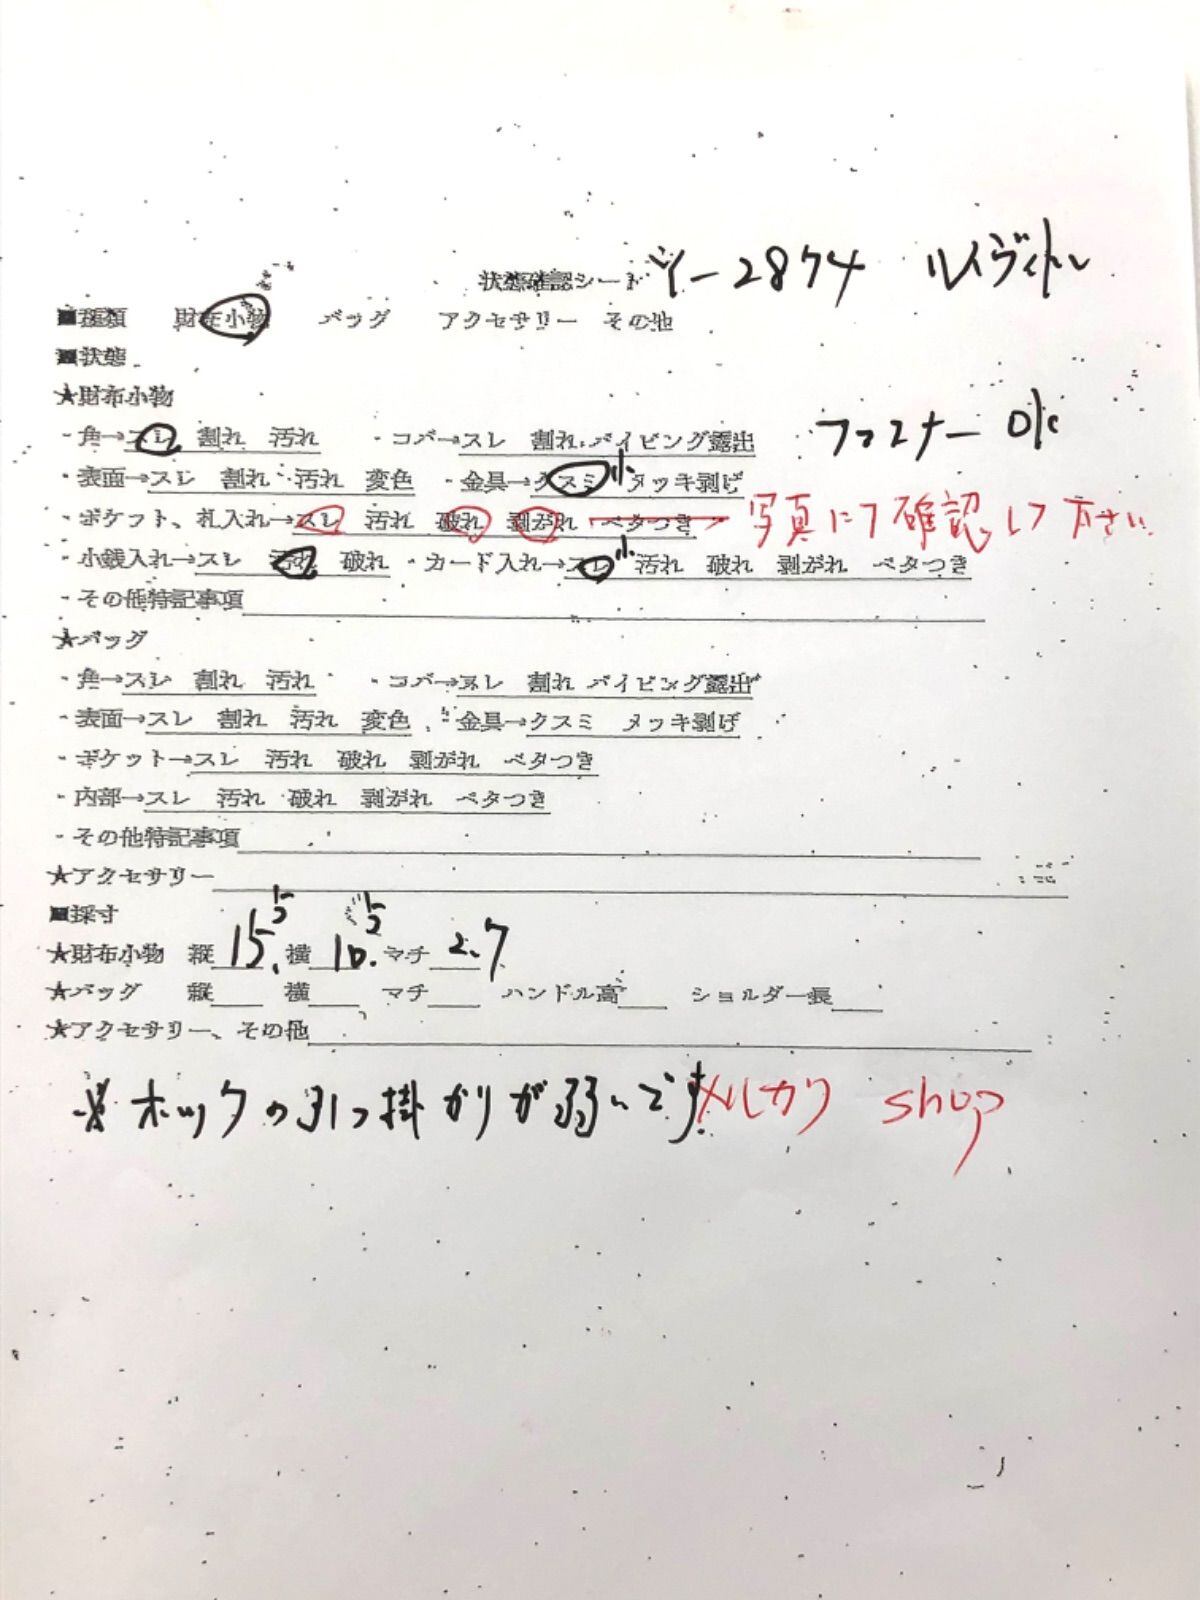 状態確認シート ツー2874 ルイヴィトン
■種類 財布小物 バッグ アクセサリー その他
■状態
★財布小物
・角→スレ 割れ 汚れ ・コバ→スレ 割れ パイピング露出 ファスナー OK
・表面→スレ 割れ 汚れ 変色 ・金具→クスミ 小 メッキ剥げ
・ポケット、札入れ→スレ 汚れ 破れ 剥がれ ベタつき 写真にて確認して下さい
・小銭入れ→スレ 汚れ 破れ ・カード入れ→スレ 小 汚れ 破れ 剥がれ ベタつき
・その他特記事項
★バッグ
・角→スレ 割れ 汚れ ・コバ→スレ 割れ パイピング露出
・表面→スレ 割れ 汚れ 変色 ・金具→クスミ メッキ剥げ
・ポケット→スレ 汚れ 破れ 剥がれ ベタつき
・内部→スレ 汚れ 破れ 剥がれ ベタつき
・その他特記事項
★アクセサリー
■採寸
★財布小物 縦 15.5 横 10.5 マチ 2.7
★バッグ 縦 横 マチ ハンドル高 ショルダー長
★アクセサリー、その他
※ホックの引っ掛かりが弱いです メルカリ shop